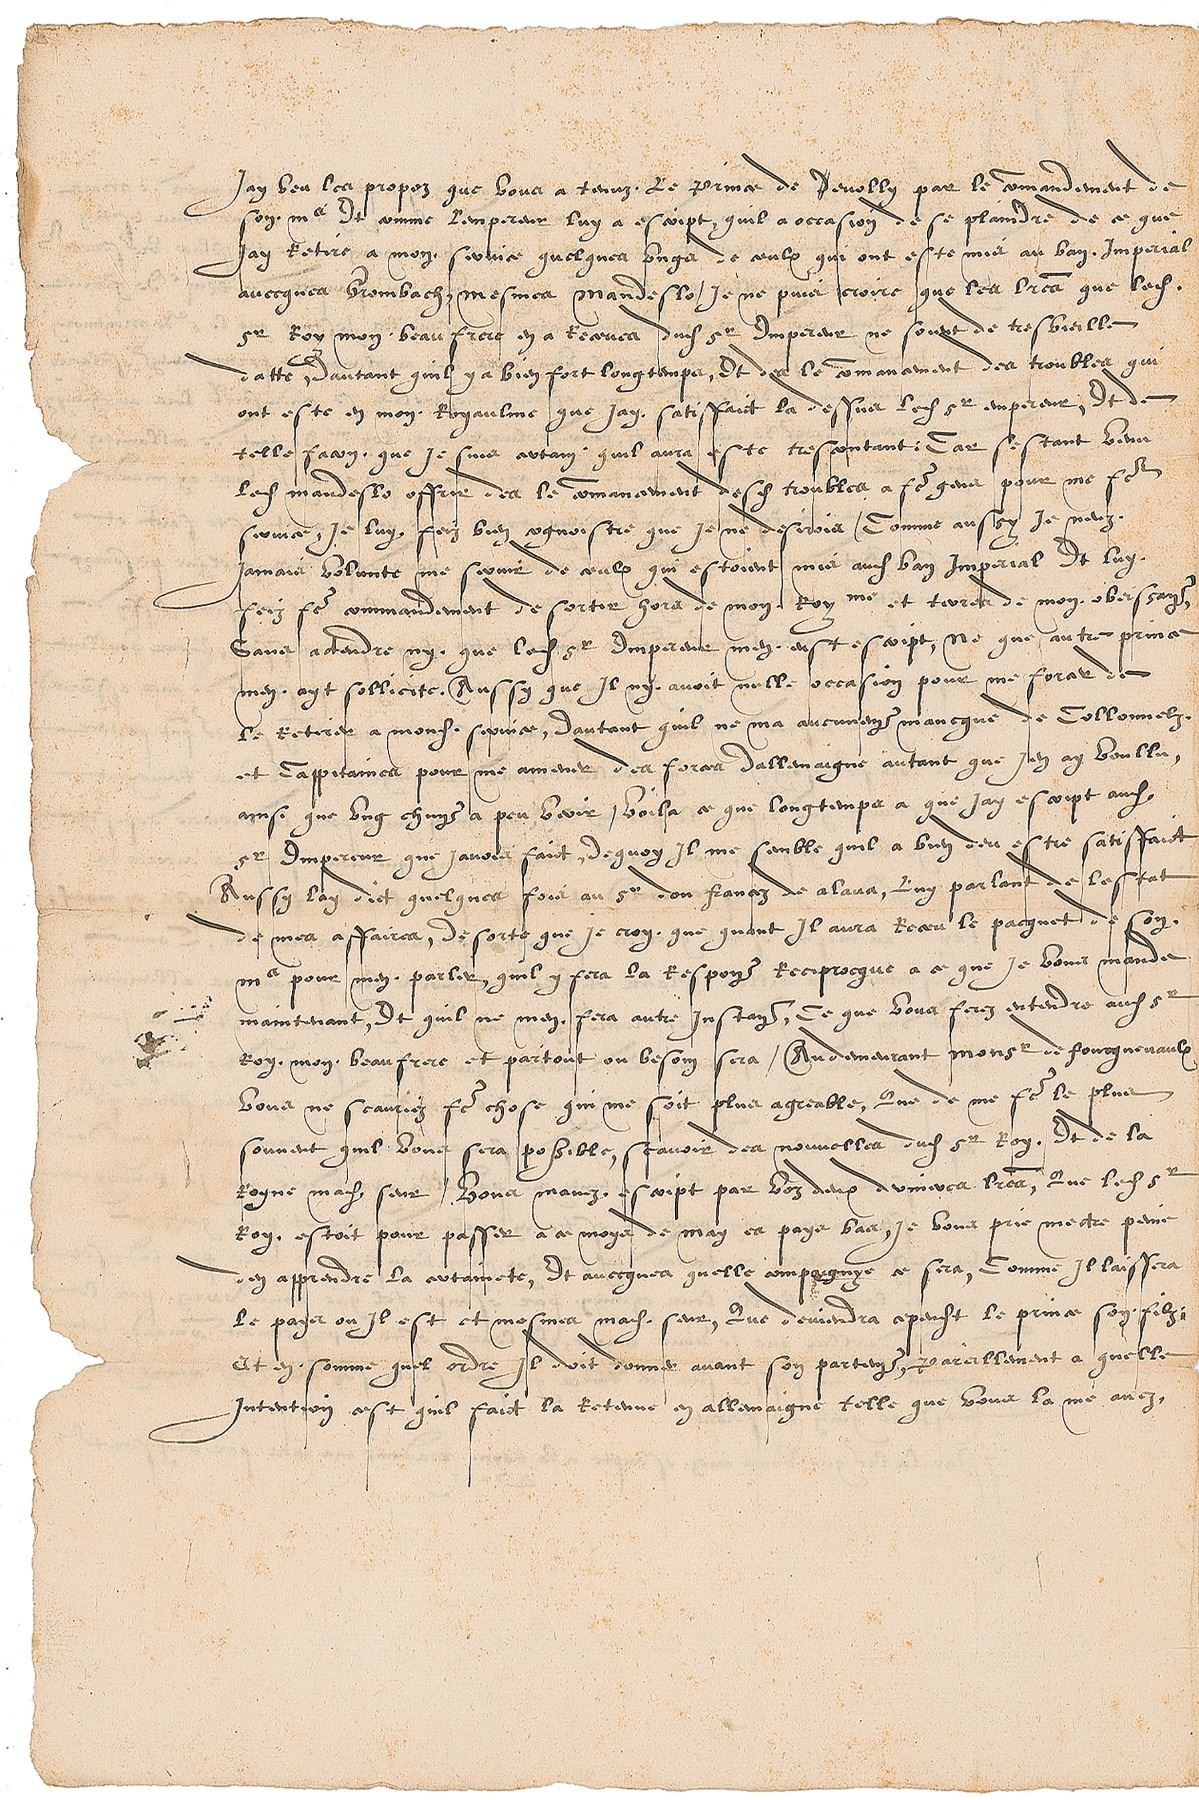 Jay veu les propoz que vous a tenuz. Le Prince de Evolly par le commandement de
son. ma.te Et comme Lempereur luy a escript, quil a occasion de se plaindre de ce que
Jay Retire a mon. service quelques ungs de ceulx qui ont este mis au ban. Imperial
avecques Grombach, mesmes Mandesло / Je ne puis croire que les lres que led.
sr Roy mon. beau frere en a Receues dud sr Empereur ne soient de tresvieille
datte, Dautant quil y a bien fort longtemps, Et des le commancement des troubles qui
ont este en mon. Royaulme que Jay. satisfaict la dessus led sr empereur, Et de
telle facon. que Je suis certain. quil aura este trescontant: Car sestant venu
led mandeslo offrir des le commancement desd troubles a fe gens pour me fe
service, Je luy. feiz bien cognoistre que Je ne desirois / Comme aussy Je neuz.
Jamais volunte me servir de ceulx qui estoient mis aud ban Imperial Et luy.
feiz fe commandement de sortir hors de mon. Royme et terres de mon. obeissance,
Sans actendre ny. que led sr Empereur men. eust escript, Ne que autre prince
men. ayt sollicite. Aussy que Il ny. avoit nulle occasion pour me forcer de
le Retirer a mond. service, Dautant quil ne ma aucunement mancque de Collonnelz.
et Cappitaines pour me amener des forces Dallemaigne autant que Jen ay voullu,
ainsi que ung chun a peu veoir / Voila ce que longtemps a que Jay escript aud.
sr Empereur que Javois faict, Dequoy Il me semble quil a bien deu estre satisfaict
Aussy lay dict quelques fois au sr don frances de alava, Luy parlant de lestat
de mes affaires, De sorte que Je croy. que quant Il aura Receu le pacquet de son.
ma.te pour men. parler, quil y fera la Response Reciprocque a ce que Je vous mande
maintenant, Et quil ne men. fera autre Instance, Ce que vous ferez entendre aud sr
Roy. mon. beau frere et partout ou besoin sera / Au demeurant monsr de fourquevaulx
vous ne scauriez fe chose qui me soit plus agreable, Que de me fe le plus
souvent quil vous sera possible, scavoir des nouvelles dud sr Roy. Et de la
Royne mad. seur / Vous mavez. escript par voz deux dernieres lres, Que led sr
Roy. estoit pour passer a ce moys de may es pays bas, Je vous prie mectre peine
den apprendre la certainete, Et avecques quelle compaignye ce sera, Comme Il laissera
le pays ou Il est et mesmes mad. seur, Que deviendra cependt le prince son. filz:
Et en. somme quel ordre Il doit donner avant son partement, Pareillement a quelle
Intention cest quil faict la Retenue en allemaigne telle que vous la me avez,